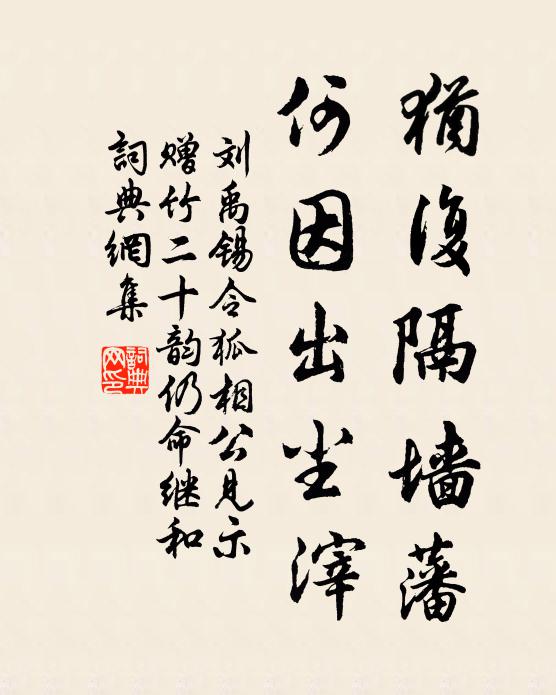 猶復隔墙藩
何因出尘滓
刘禹锡令狐相公見示
赠竹二十韵仍命继和
詞典網集
詞典
网印